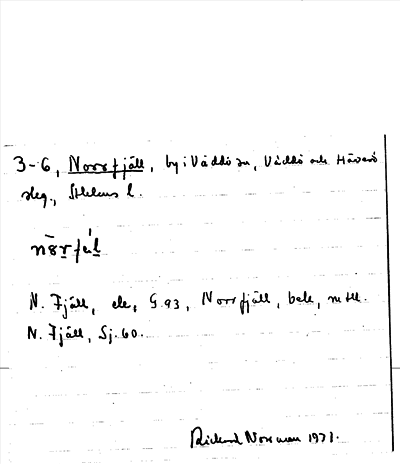 3-6, Norrfjäll, by i Väddö sn, Väddö och Häverö
skg., Sthlms l.
N. Fjäll, ek, G.93, Norrfjäll, beb., m fl.
N. Fjäll, Sj. 60.
Rickard Norrman 1973.